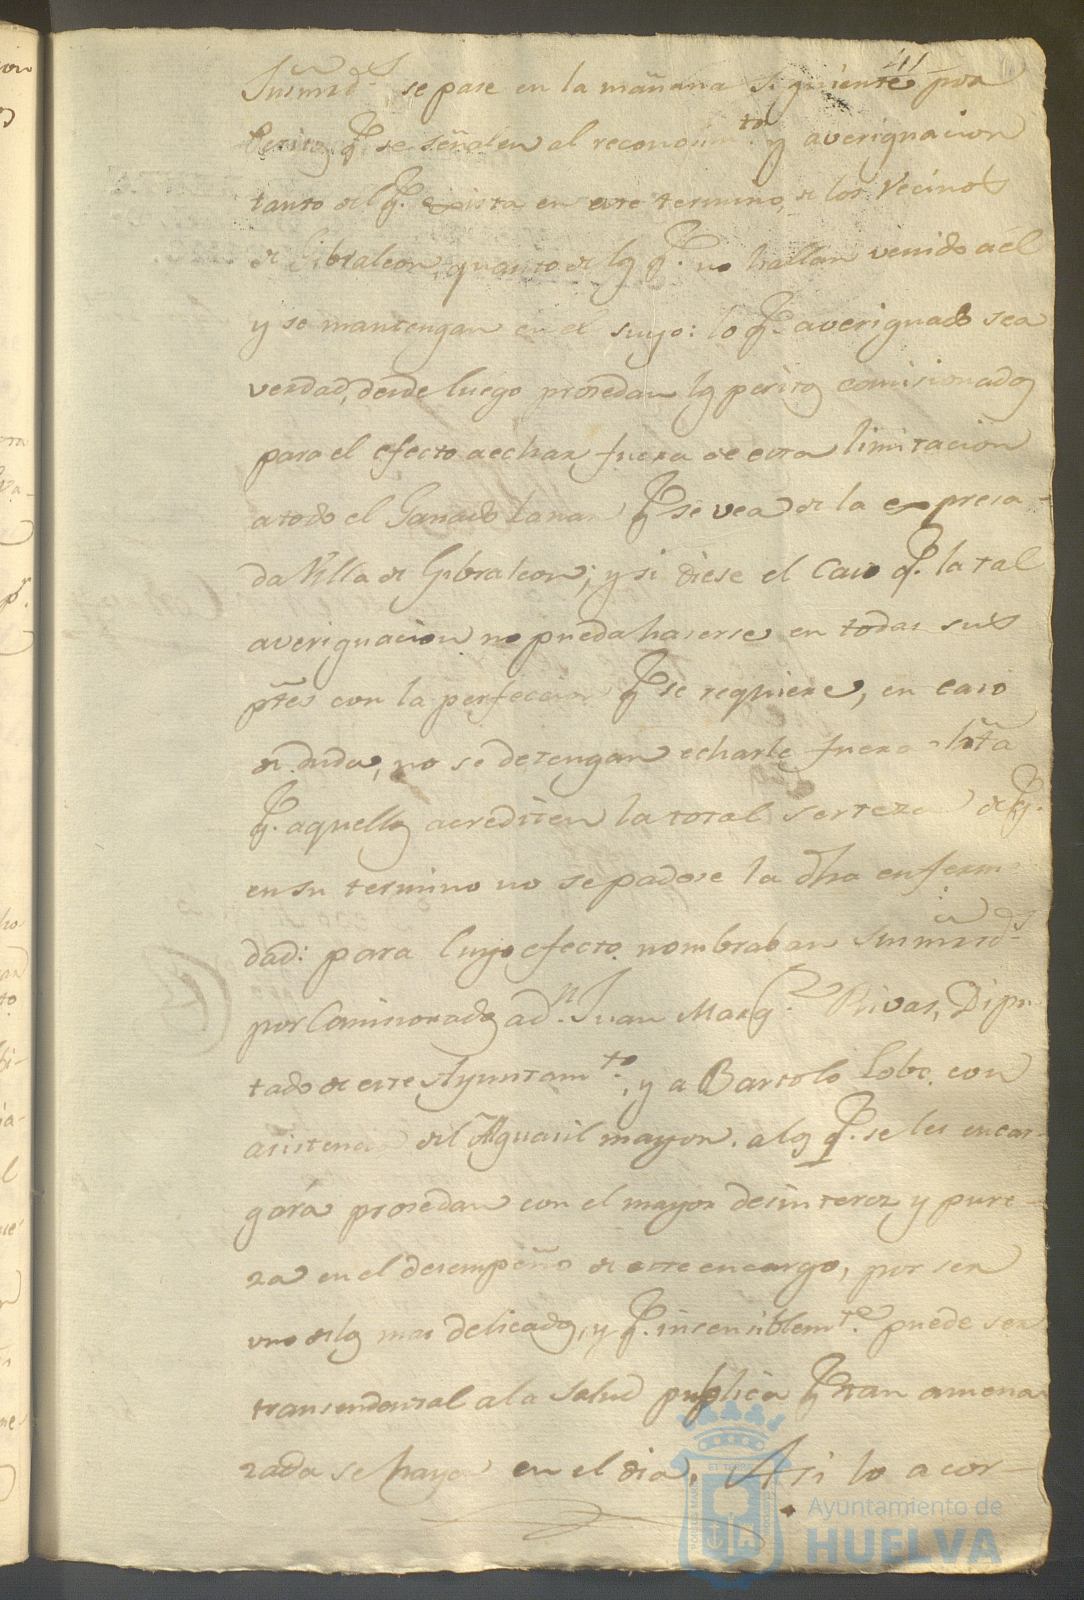 Susmrds. se pase en la mañana siguiente por
Peritos q. se señalen al reconosim.to y averiguacion
tanto del q. exista en este termino, de los Vecinos
de Gibraleon, quanto de los q. no hallan venido a él
y se mantengan en el suyo: lo q. averiguado sea
verdad, desde luego prosedan los peritos comisionados
para el efecto a echar fuera de esta limitacion
a todo el Ganado Lanar q. se vea de la expresa-
da Villa de Gibraleon; y si diese el caso q. la tal
averiguacion no pueda haserse en todas sus
ptes con la perfeccion q. se requiere, en caso
de duda, no se detengan echarle fuera hta
q. aquellos acrediten la total serteza de q.
en su termino no se padese la dha enferm
dad: para cuyo efecto nombraban Susmrds.
por Comisionados a d.n Juan Marq.z Rivas, Dipu
tado de este Ayuntam.to, y a Bartolo Lobo, con
asistencia del Alguasil mayor. a los q. se les encar-
gará prosedan con el mayor desinterez y pure-
za en el desempeño de este encargo, por ser
uno de los mas delicados, y q. insensiblem.te puede ser
transendental a la salud publica q. tan amena
zada se haya en el dia. Asi lo acor-
Ayuntamiento de
HUELVA